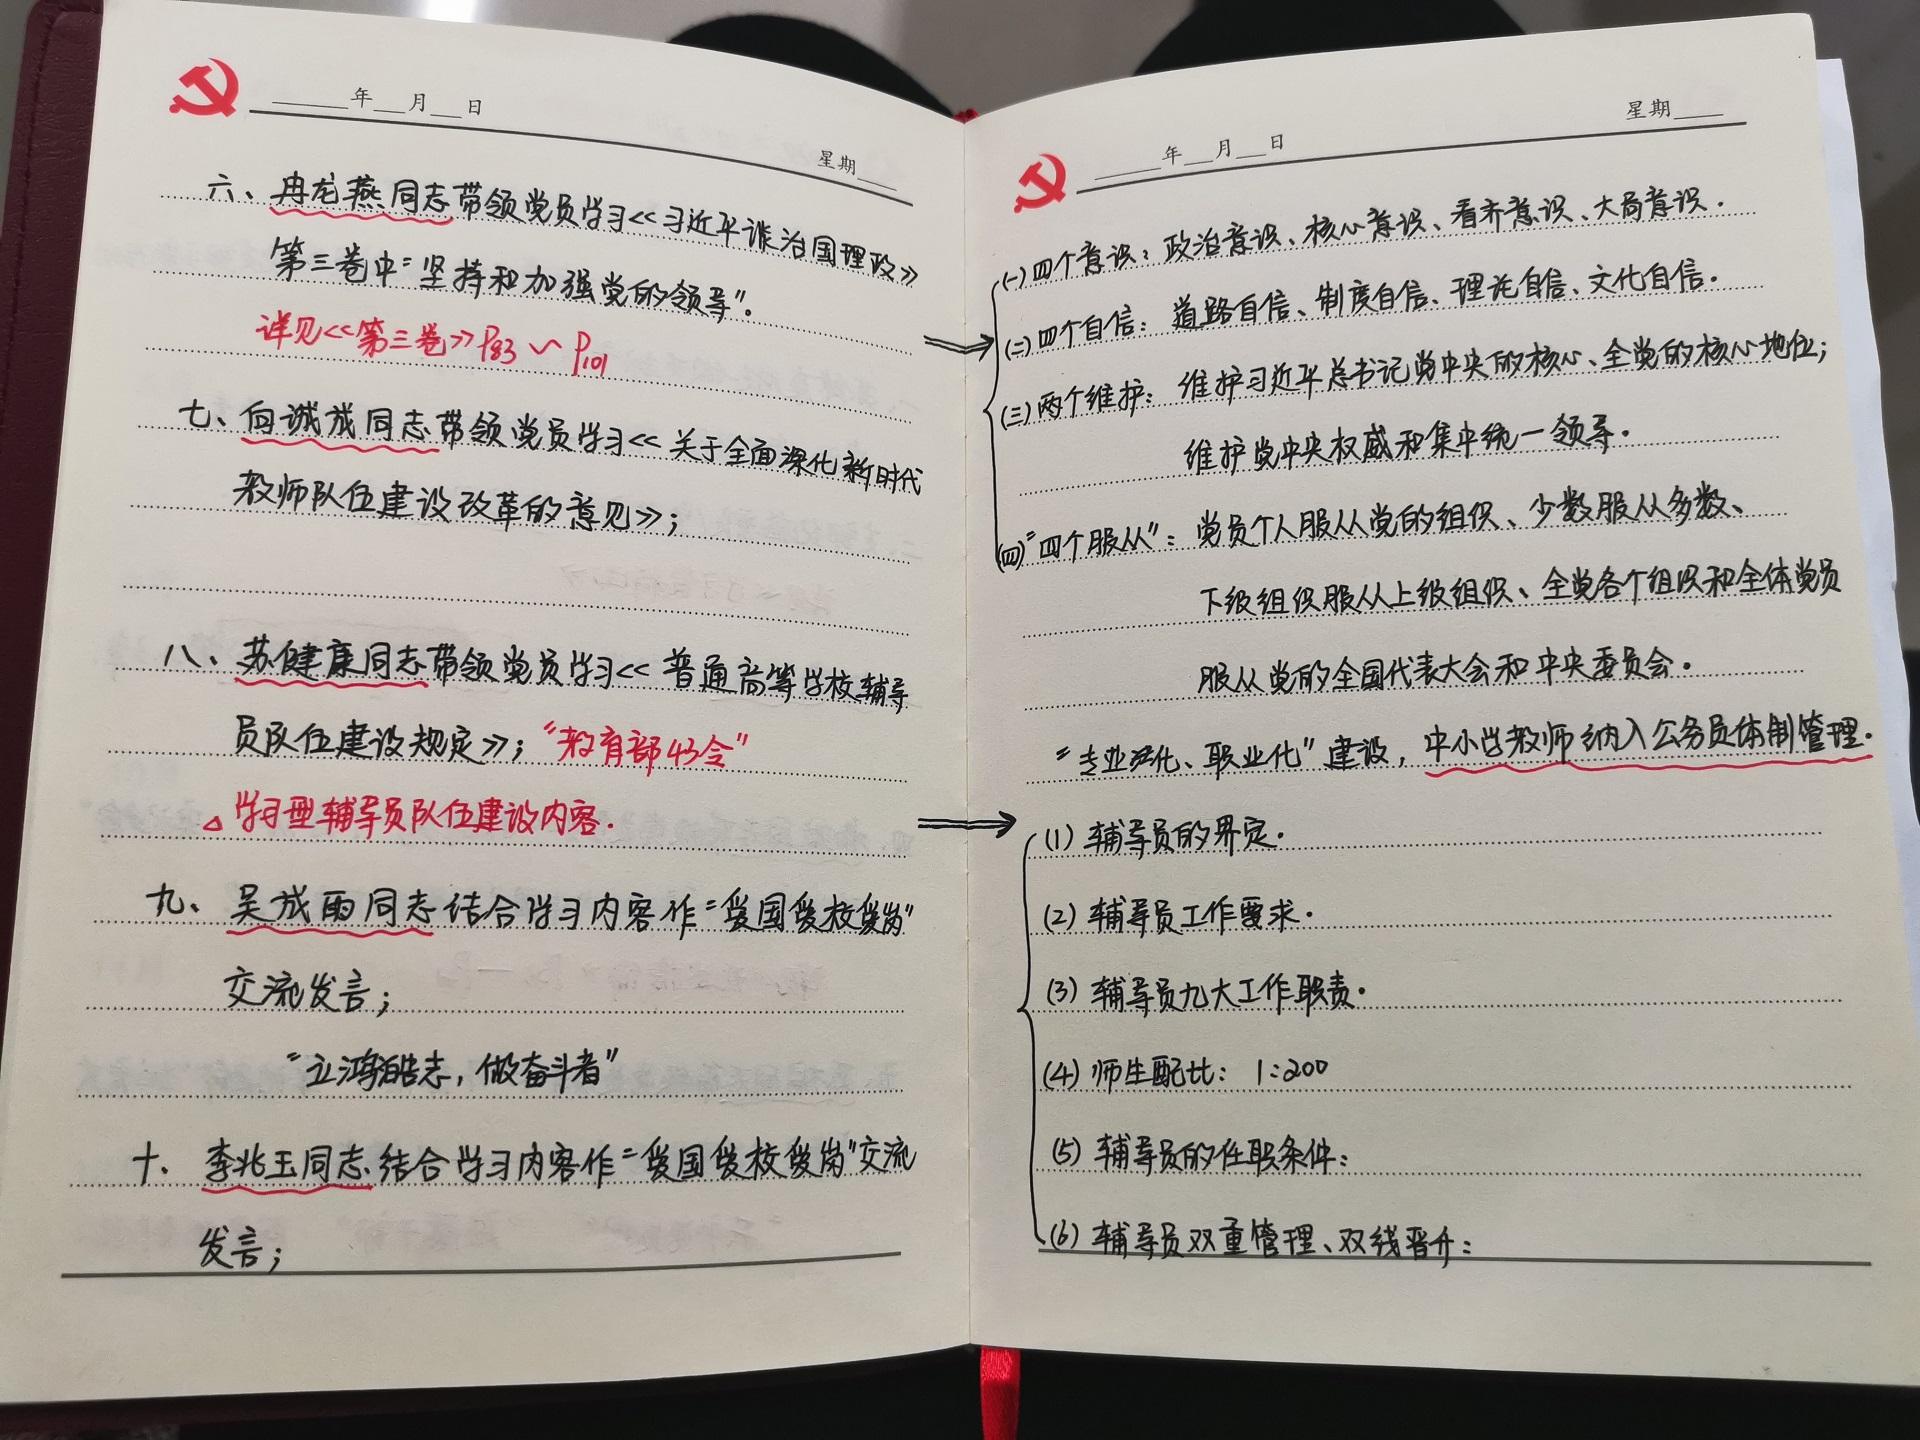 ____年__月__日
星期___
六、冉龙燕同志带领党员学习<<习近平谈治国理政>>
第三卷中"坚持和加强党的领导"。
详见<<第三卷>>P83~P101
七、向诚成同志带领党员学习<<关于全面深化新时代
教师队伍建设改革的意见>>;
八、苏健康同志带领党员学习<<普通高等学校辅导
员队伍建设规定>>;"教育部43令"
△学习型辅导员队伍建设内容.
九、吴成雨同志结合学习内容作"爱国爱校爱岗"
交流发言;
"立鸿鹄志,做奋斗者"
十、李兆玉同志结合学习内容作"爱国爱校爱岗"交流
发言;
____年__月__日
星期___
(一)四个意识:政治意识、核心意识、看齐意识、大局意识.
(二)四个自信:道路自信、制度自信、理论自信、文化自信.
(三)两个维护:维护习近平总书记党中央的核心、全党的核心地位;
维护党中央权威和集中统一领导.
(四)"四个服从":党员个人服从党的组织、少数服从多数、
下级组织服从上级组织、全党各个组织和全体党员
服从党的全国代表大会和中央委员会.
"专业化、职业化"建设,中小学教师纳入公务员体制管理.
(1)辅导员的界定.
(2)辅导员工作要求.
(3)辅导员九大工作职责.
(4)师生配比:1:200
(5)辅导员的任职条件:
(6)辅导员双重管理、双线晋升: